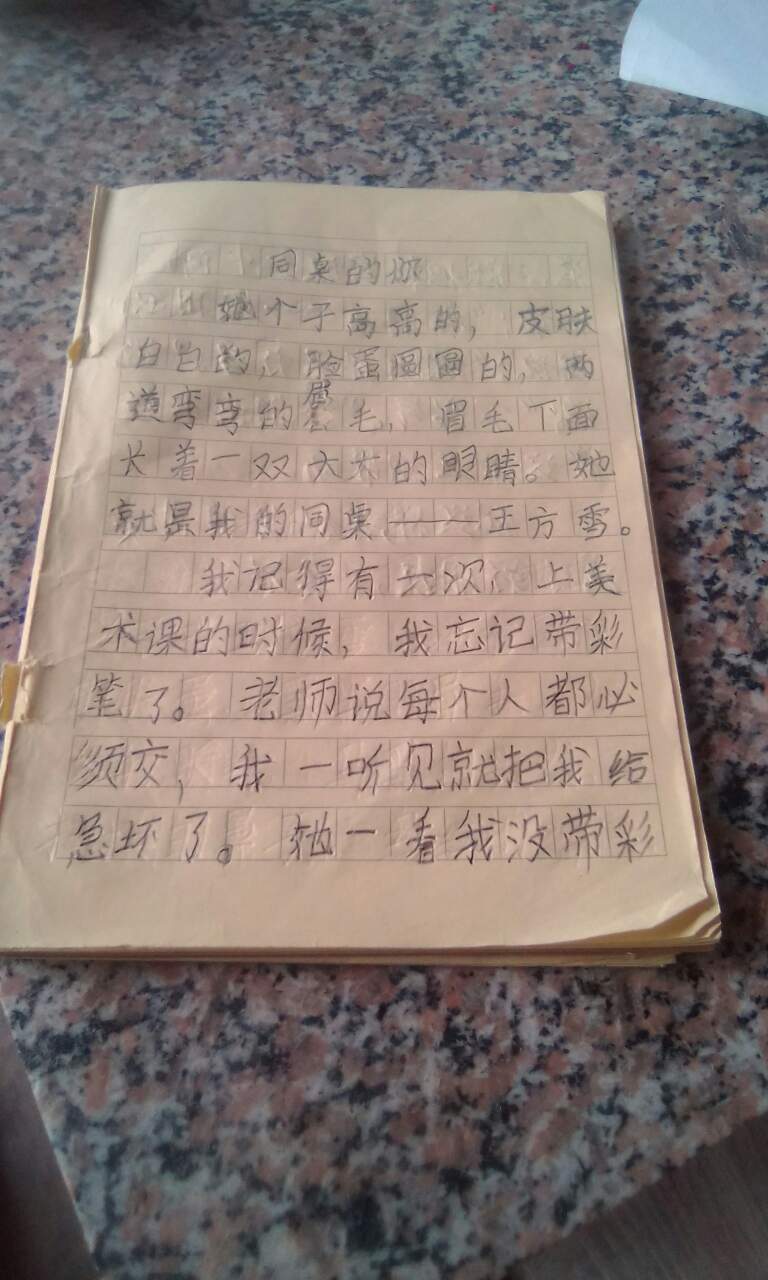 同桌的你
她个子高高的，皮肤
白白的，脸蛋圆圆的，两
道弯弯的眉毛，眉毛下面
长着一双大大的眼睛。她
就是我的同桌——王方雪。
我记得有一次，上美
术课的时候，我忘记带彩
笔了。老师说每个人都必
须交，我一听见就把我给
急坏了。她一看我没带彩